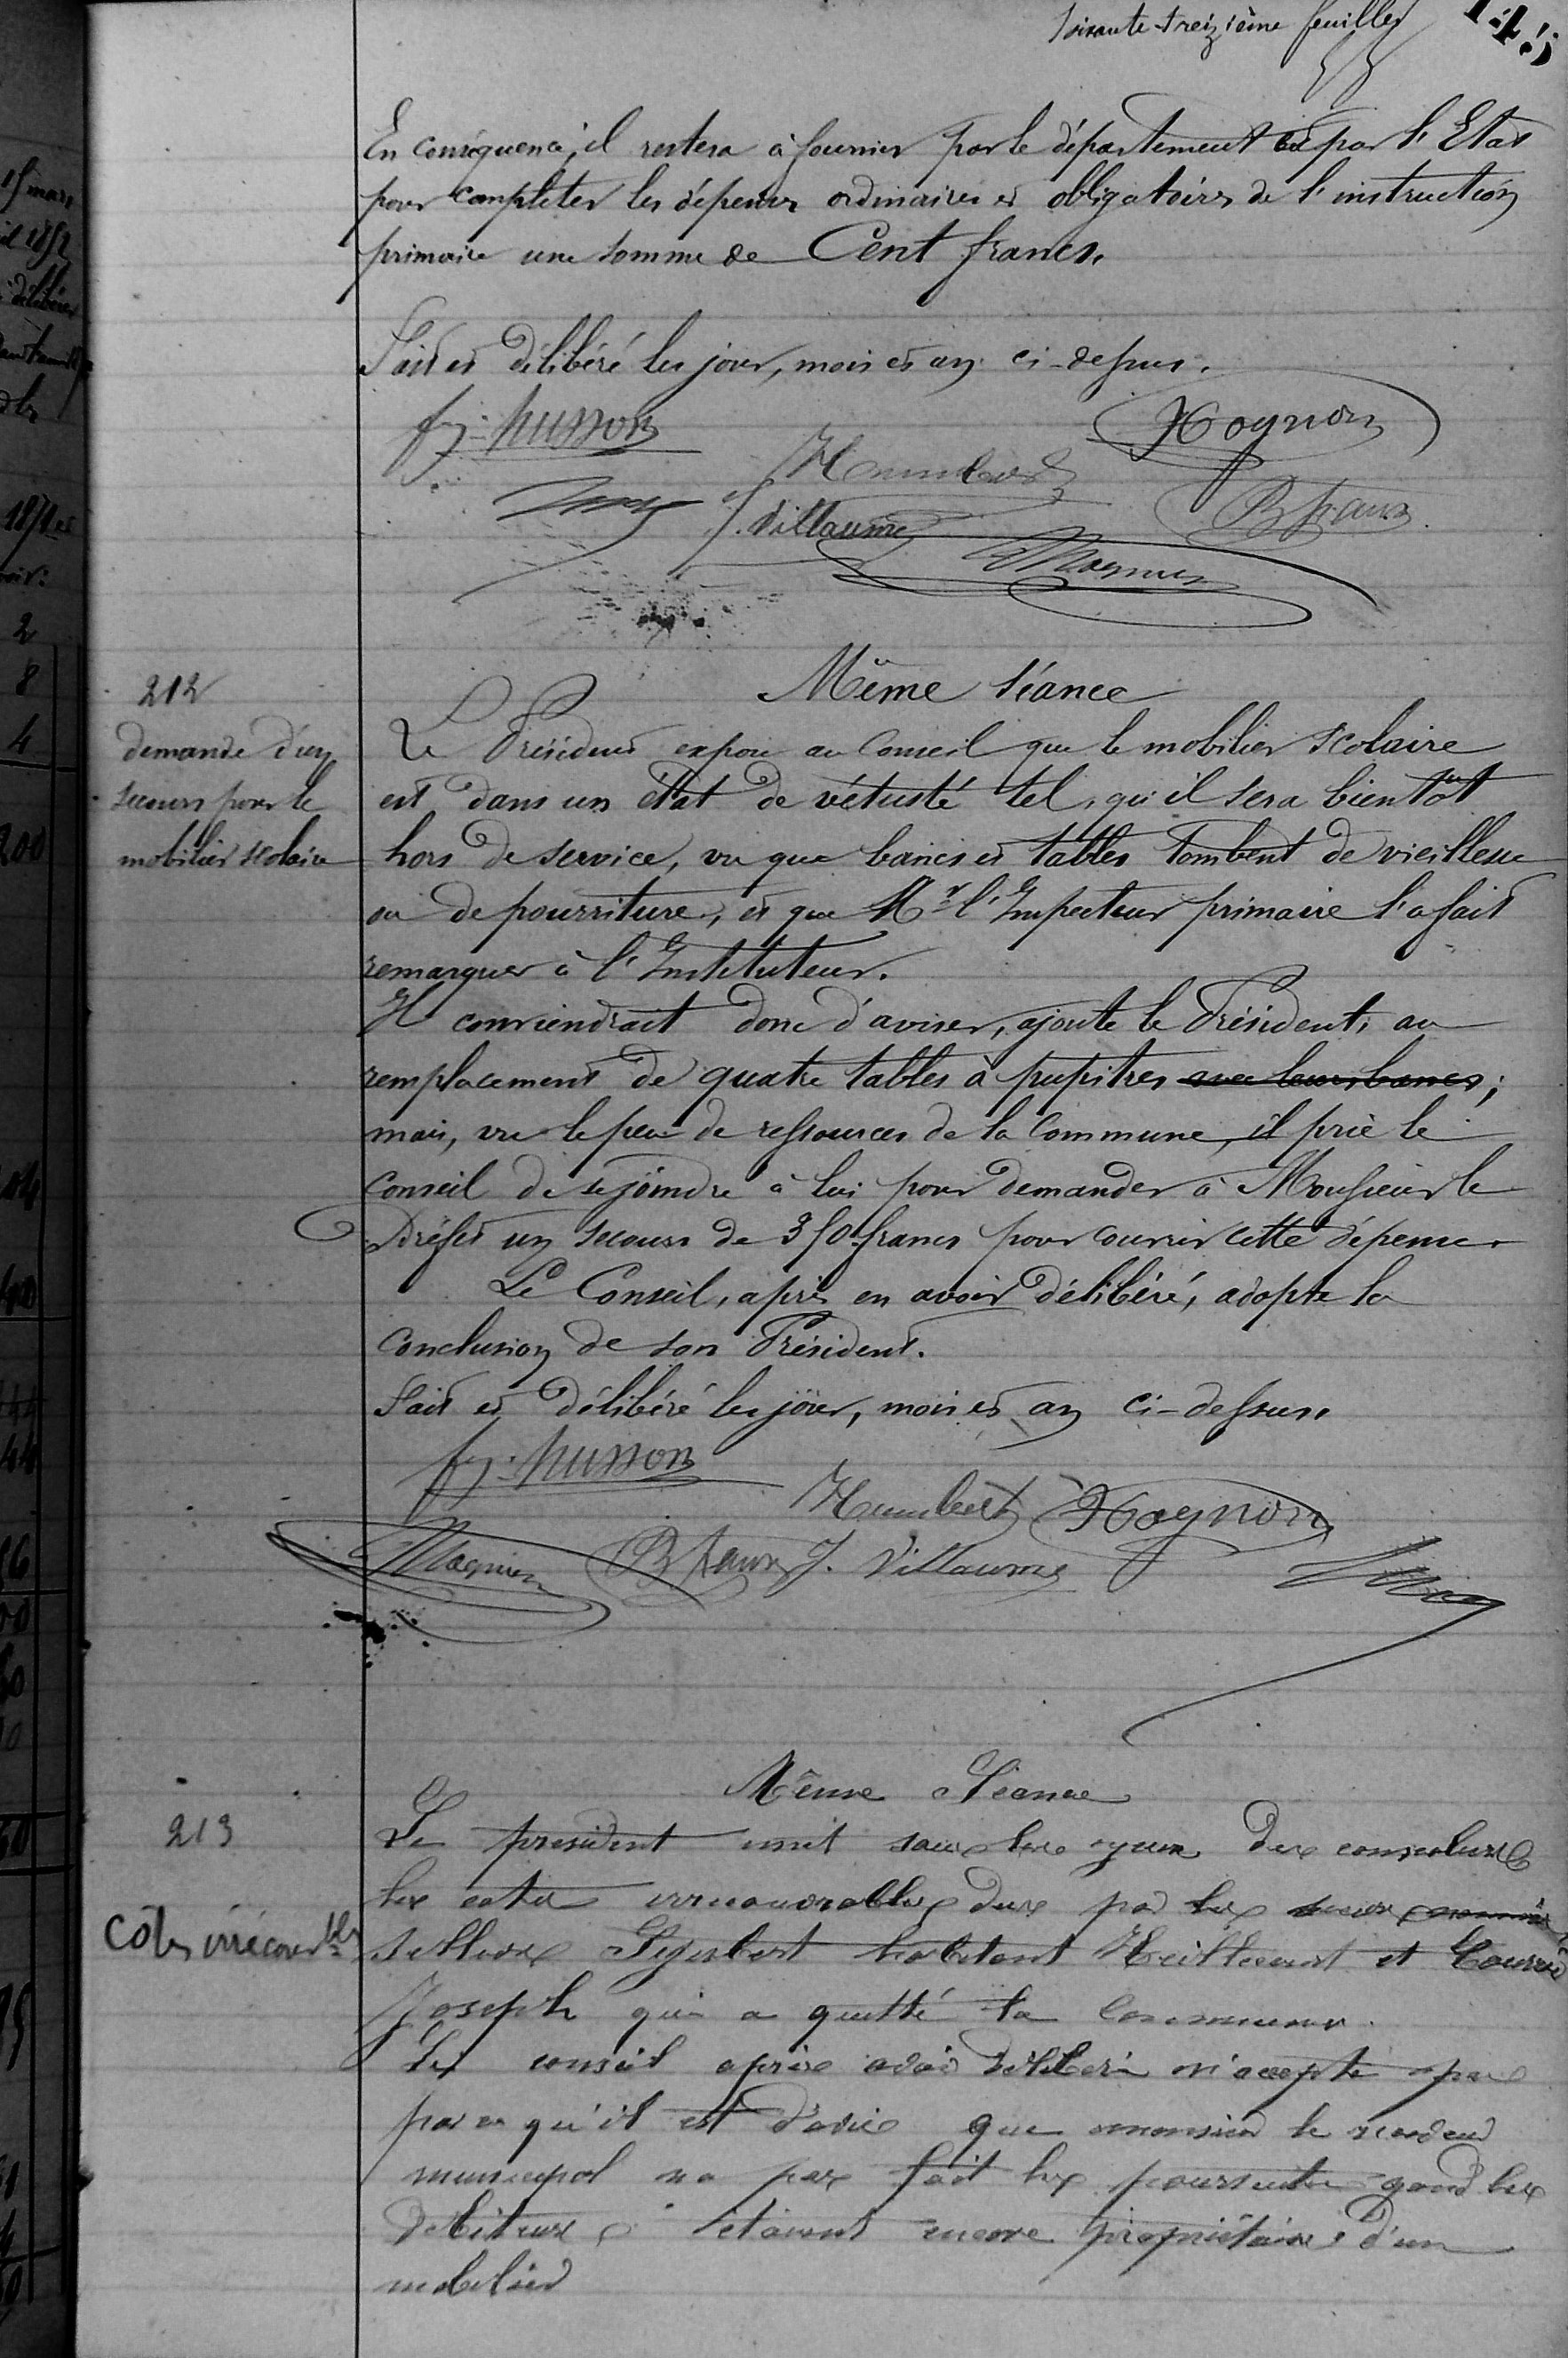 soixante-treizième feuillet
145
En conséquence, il restera à fournir par le département et par l'Etat
pour compléter les dépenses ordinaires et obligatoires de l'instruction
primaire une somme de Cent francs.
Fait et délibéré les jour, mois et an ci-dessus.
husson
Hognon
Humbert
J. Villaume
Magnier
212
demande d'un
secours pour le
mobilier scolaire
Même séance
Le Président expose au Conseil que le mobilier scolaire
est dans un état de vétusté tel, qu'il sera bientôt
hors de service, vu que bancs et tables tombent de vieillesse
ou de pourriture, et que Mr l'Inspecteur primaire l'a fait
remarquer à l'Instituteur.
Il conviendrait donc d'aviser, ajoute le Président, au
remplacement de quatre tables à pupitres avec leurs bancs;
mais, vu le peu de ressources de la Commune, il prie le
Conseil de se joindre à lui pour demander à Monsieur le
Préfet un secours de 350 francs pour couvrir cette dépense.
Le Conseil, après en avoir délibéré, adopte la
conclusion de son Président.
Fait et délibéré les jour, mois et an ci-dessus.
husson
Humbert Hognon
Magnier J. Villaume
213
Côtes irrécouvbles
Même Séance
Le président mit sous les yeux des conseulers
les cotes irrecouvrables dues par les
Sigisbert habitant et
Joseph qui a quitté la commune.
Le conseil après avoir délibéré n'accepte pas
parce qu'il est d'avis que monsieur le receveur
municipal na pas fait les poursuites quand les
debiteurs étaient encore propriétaires d'un
mobilier